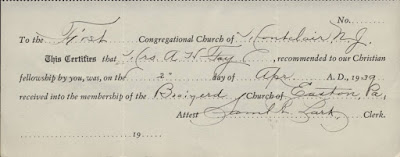 No.
To the First Congregational Church of Montclair N.J.
This Certifies that Mrs A H Fay, recommended to our Christian
fellowship by you, was, on the 2" day of Apr. A. D., 1939
received into the membership of the Church of Easton, Pa,
Attest Clerk.
19